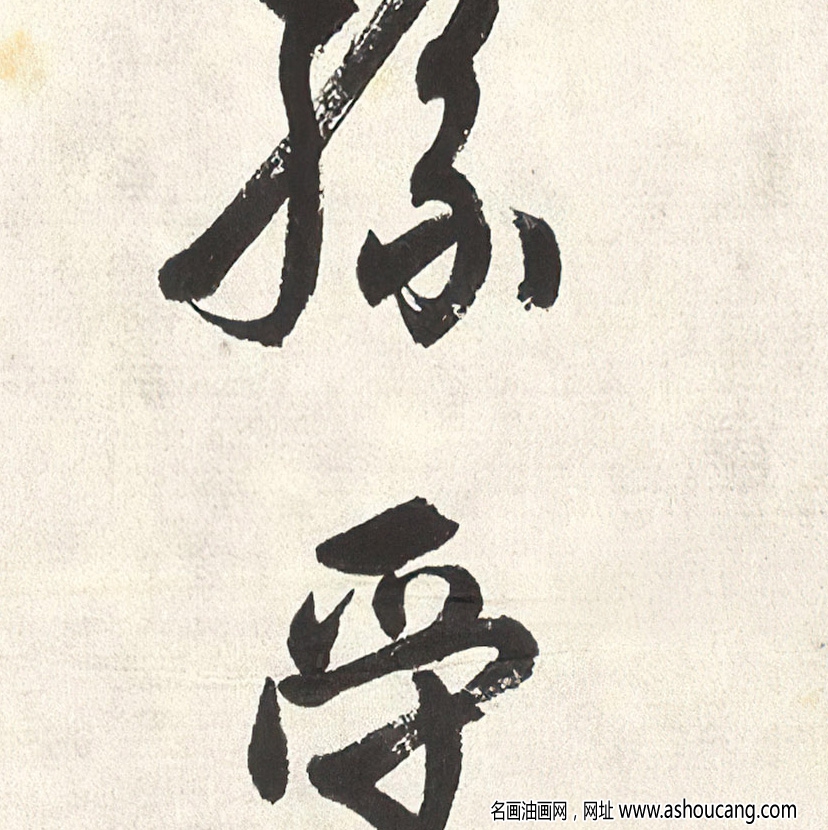 孫
名画油画网，网址 www.ashoucang.com